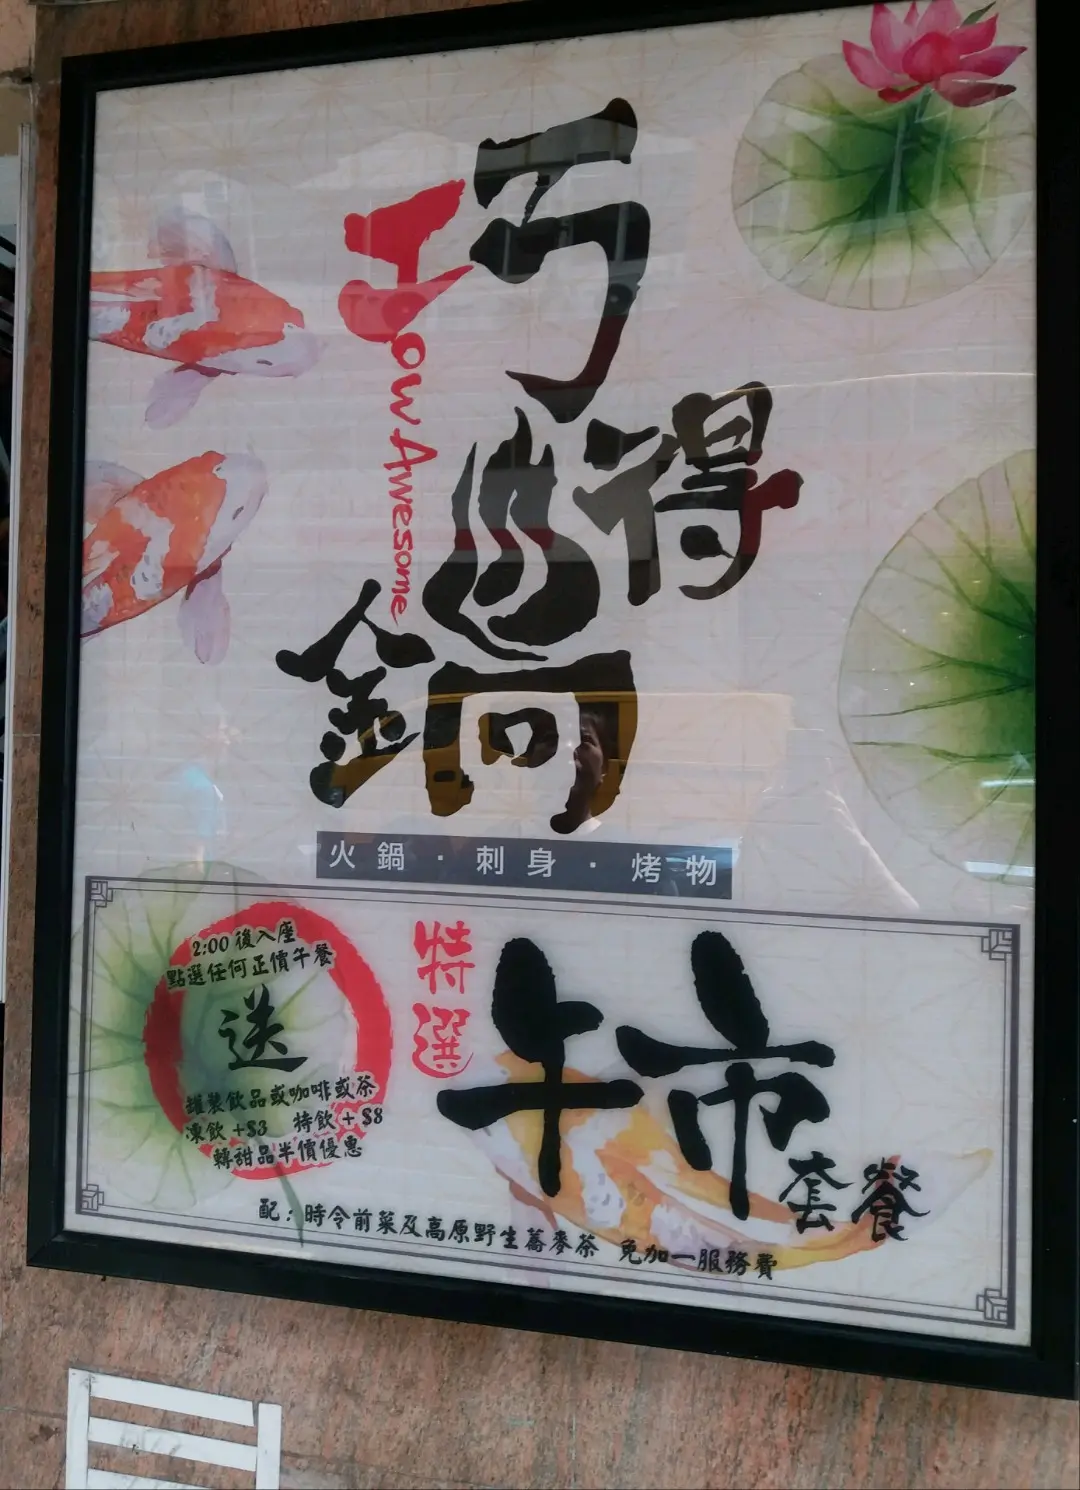 巧得鍋
How Awesome
火鍋·刺身·烤物
2:00 後入座
點選任何正價午餐
送
罐裝飲品或咖啡或茶
凍飲 +$3 特飲 + $8
轉甜品半價優惠
特選
午市套餐
配：時令前菜及高原野生蕎麥茶 免加一服務費